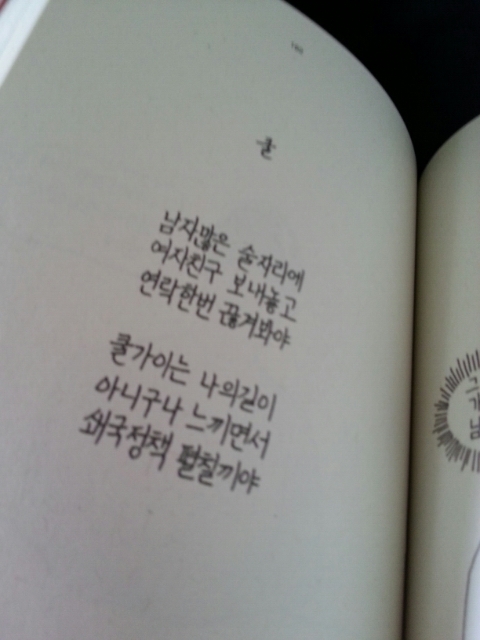 쿨
남자많은 술자리에
여자친구 보내놓고
연락한번 끊겨봐야
쿨가이는 나의길이
아니구나 느끼면서
쇄국정책 펼칠끼야